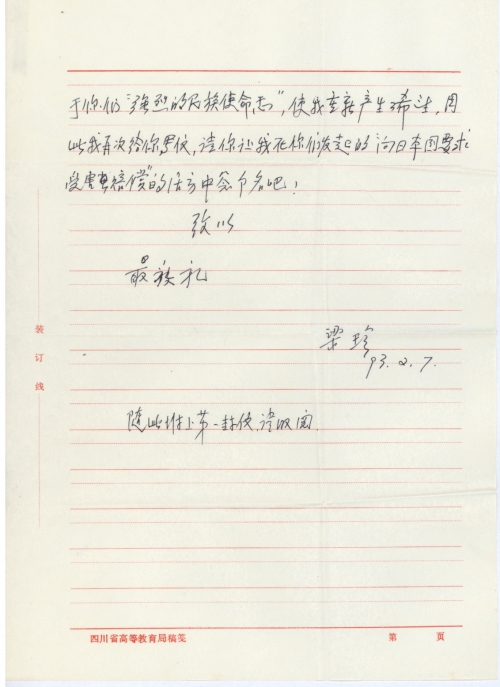 于你们“强烈的民族使命感”，使我重新产生希望，因
此我再次给你写信，请你让我在你们发起的“向日本国要求
受害赔偿”的活动中签个名吧！
致以
最 敬 礼
梁珍
93.2.7.
随此附上第一封信，请收阅
装
订
线
四川省高等教育局稿笺
第 页